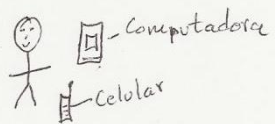 Computadora
Celular